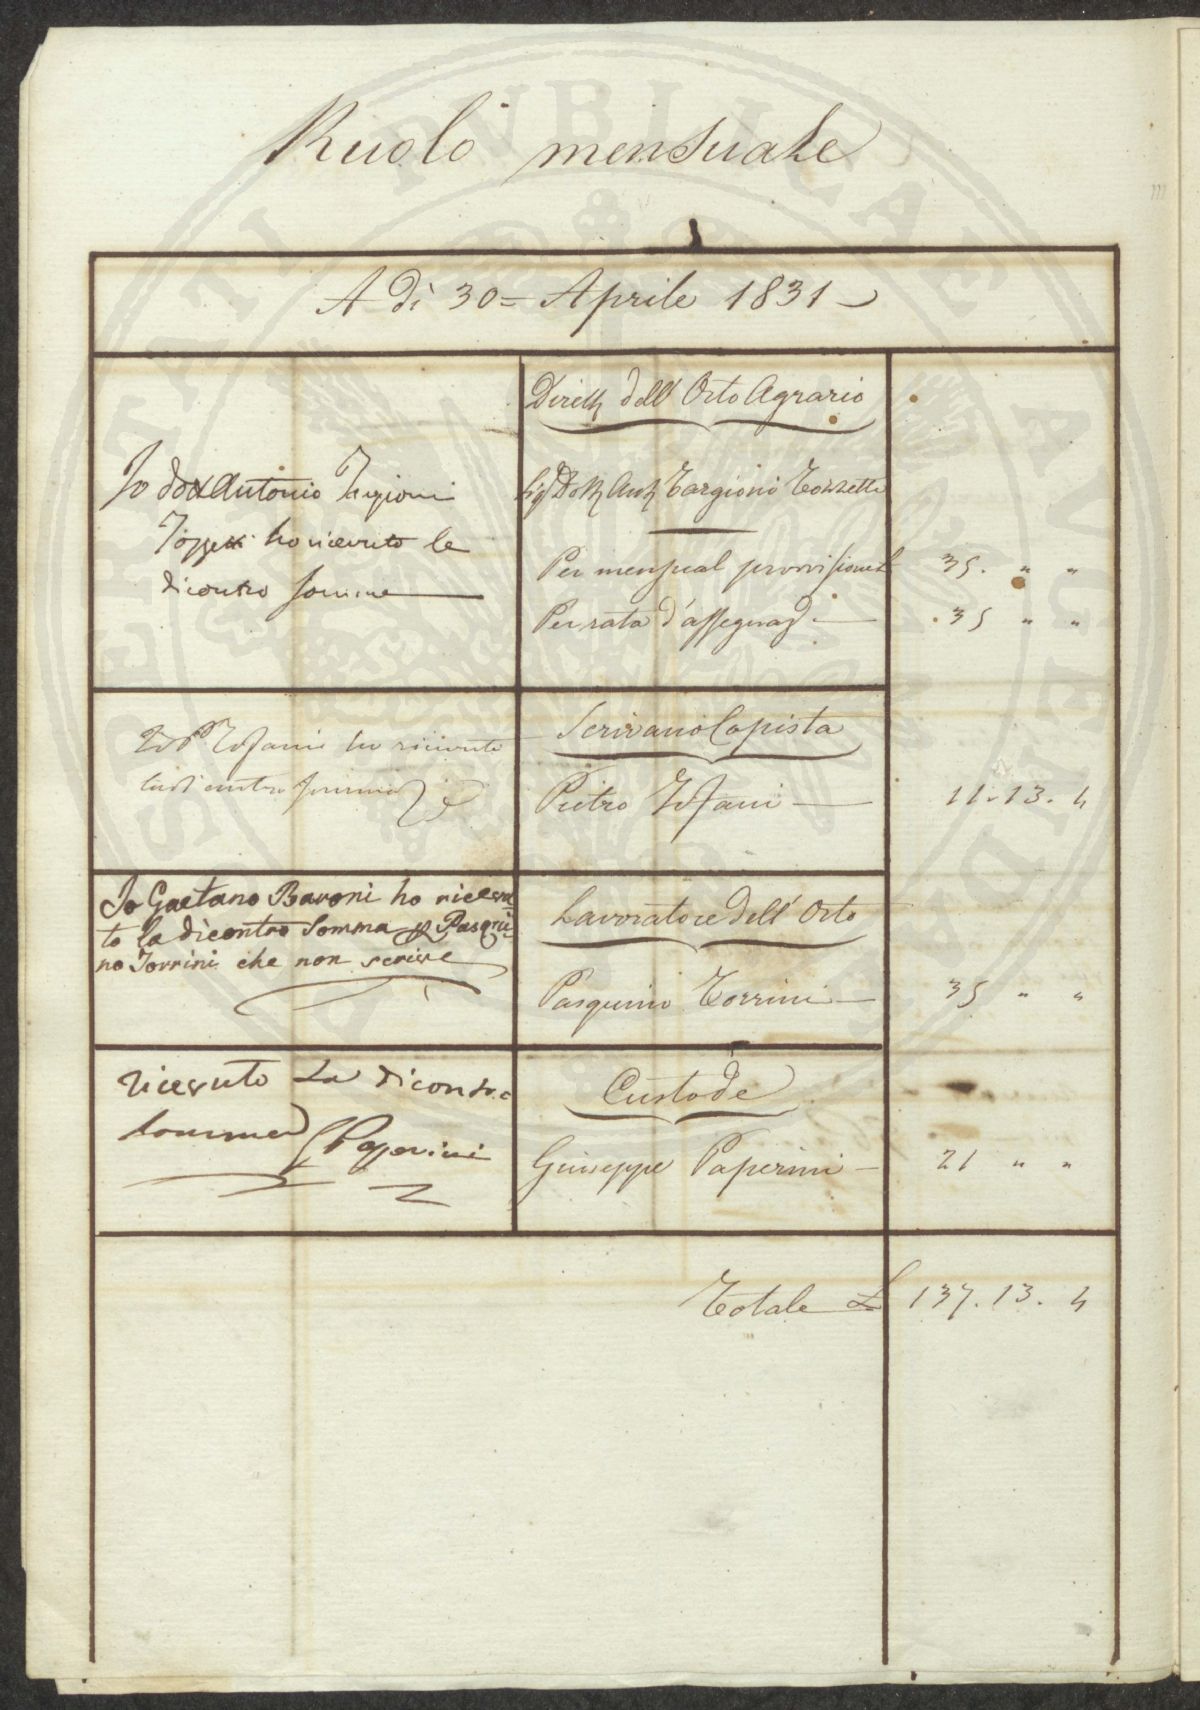 Ruolo mensuale
A dì 30= Aprile 1831
Io Dott Antonio Targioni
Tozzetti ho ricevuto le
dicontro somme
Dirett dell' Orto Agrario
Sig Dott Ant Targioni Tozzetti
Per mensual provvisione £ 35. " "
Per rata d'assegnaz 35 " "
Tofani ho ricevuto
la di contro somma
Scrivano Copista
Pietro Tofani 11.13.4
Io Gaetano Baroni ho ricevu
to la dicontro Somma p Pasqui
no Torrini che non scrive
Lavoratore dell' Orto
Pasquino Torrini 35 " "
ricevuto La dicontro
somma G Paperini
Custode
Giuseppe Paperini 21 " "
Totale £ 137.13.4
PVBLICAE